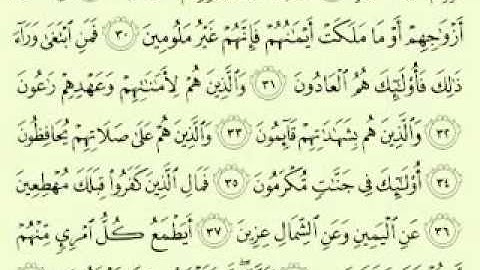 أَزْوَٰجِهِمْ أَوْ مَا مَلَكَتْ أَيْمَٰنُهُمْ فَإِنَّهُمْ غَيْرُ مَلُومِينَ ٣٠ فَمَنِ ٱبْتَغَىٰ وَرَآءَ
ذَٰلِكَ فَأُو۟لَٰٓئِكَ هُمُ ٱلْعَادُونَ ٣١ وَٱلَّذِينَ هُمْ لِأَمَٰنَٰتِهِمْ وَعَهْدِهِمْ رَٰعُونَ
٣٢ وَٱلَّذِينَ هُم بِشَهَٰدَٰتِهِمْ قَآئِمُونَ ٣٣ وَٱلَّذِينَ هُمْ عَلَىٰ صَلَاتِهِمْ يُحَافِظُونَ
٣٤ أُو۟لَٰٓئِكَ فِى جَنَّٰتٍ مُّكْرَمُونَ ٣٥ فَمَالِ ٱلَّذِينَ كَفَرُوا۟ قِبَلَكَ مُهْطِعِينَ
٣٦ عَنِ ٱلْيَمِينِ وَعَنِ ٱلشِّمَالِ عِزِينَ ٣٧ أَيَطْمَعُ كُلُّ ٱمْرِئٍ مِّنْهُمْ